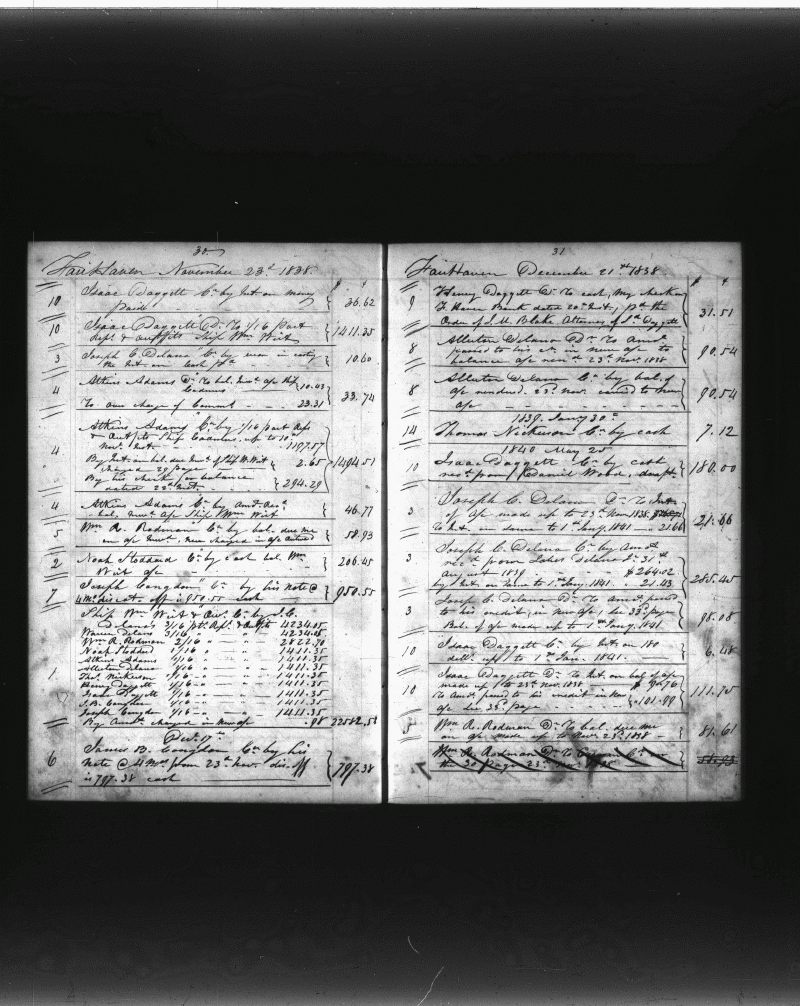 30
Fairhaven November 23d 1838.
10 Isaac Daggett Cr by Int. on money
paid 36.62
10 Isaac Daggett Dr To 1/16 part
Repl & outfits Ship Wm Wirt 1411.35
3 Joseph C. Delano Cr by error in casting
the Int. on Cash 10.60
4 Atkins Adams Dr To bal. Ship
Cadmus 10.43
To our charge of Commt 23.31 33.74
4 Atkins Adams Cr by 1/16 part
& Outfits Ship Cadmus, up to 10th
Nov. Inst. 1197.57
By Int. on bal. due Ship W. Wirt
29 page 2.65 1494.51
By his check on balance
dated 23d Inst. 294.29
4 Atkins Adams Cr by Amt.
bal. a/c Ship Wm Wirt 46.77
5 Wm R. Rodman Cr by bal. due me
on a/c new a/c 58.93
2 Noah Stoddard Cr by Cash bal. Wm
Wirt a/c 206.45
7 Joseph Congdon Cr by his Note @
4 Mo. off is 950.55 cash 950.55
1 Ship Wm Wirt & Cr by J.C.
Delano's 3/16 pt. Repl. & Outfits 4234.05
Warren Delano 3/16 " " " 4234.05
Wm R. Rodman 2/16 " " " 2822.70
Noah Stoddard 1/16 " " " 1411.35
Atkins Adams 1/16 " " " 1411.35
Allerton Delano 1/16 " " " 1411.35
Thos. Nickerson 1/16 " " " 1411.35
Henry Daggett 1/16 " " " 1411.35
Isaac Daggett 1/16 " " " 1411.35
J.B. Congdon 1/16 " " " 1411.35
Joseph Congdon 1/16 " " " 1411.35
By Amt. charged in new a/c .98 22582.58
Dec. 17th
6 James B. Congdon Cr by his
Note @ 4 Mos from 23d Nov. dis. off
is 797.38 cash 797.38
31
Fairhaven December 21st 1838
9 Henry Daggett Dr To cash, my check on
F. Haven Bank dated 20th Inst., pr the
Order of J.M. Blake Attorney of Daggett 31.51
8 Allerton Delano Dr To Amt.
passed to his Cr. in new a/c to
balance a/c 23d Nov. 1838 90.54
8 Allerton Delano Cr by bal. of
a/c rendered 23d Nov. carried to new
a/c 90.54
1839. Jany 30th
14 Thomas Nickerson Cr by cash 7.12
1840 May 25
10 Isaac Daggett Cr by cash
from Daniel Wood, 180.00
3 Joseph C. Delano Dr To Int.
of a/c made up to 23d Nov. 1838.
To Int. on same to 1st Jany. 1841 21.66 21.66
3 Joseph C. Delano Cr by Amt.
from Delano 31st
August 1839 $264.02
by Int. on same to 1st Jany. 1841. 21.43 285.45
3 Joseph C. Delano Dr To Amt. passed
to his credit, in new a/c, see 33d page
Bal. of a/c made up to 1st Jany. 1841 98.08
10 Isaac Daggett Cr by Int. on 180
dolls. up to 1st Jan. 1841. 6.48
10 Isaac Daggett Dr To Int. on bal. of a/c
made up to 23d Nov. 1838 $9.76
To Amt. passed to his credit in new
a/c see 33d page 101.99 111.75
5 Wm R. Rodman Dr To bal. due me
on a/c made up to Nov. 23d 1838 81.61
Wm R. Rodman Dr To
the 30 page 23d Nov. 1838 58.93